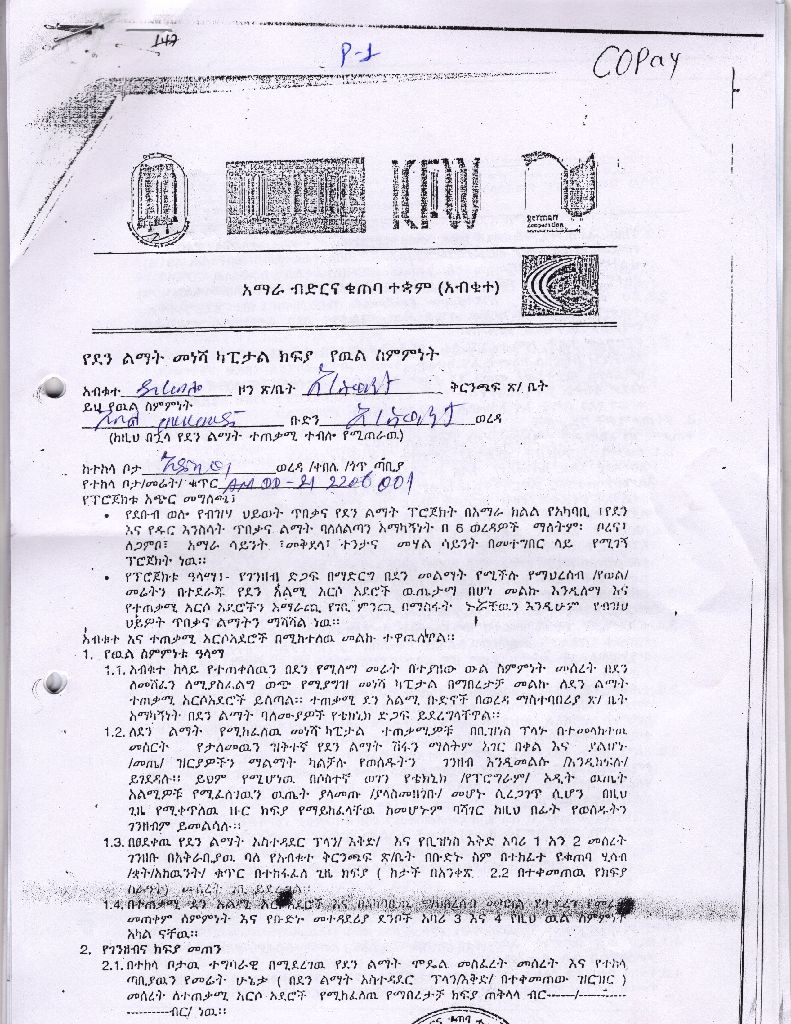 147
P-1
COPay
KfW
german
cooperation
አማራ ብድርና ቁጠባ ተቋም (አብቁተ)
የደን ልማት መነሻ ካፒታል ክፍያ የዉል ስምምነት
አብቁተ ዞን ጽ/ቤት ቅርንጫፍ ጽ/ ቤት
ይህ የዉል ስምምነት
ቡድን ወረዳ
(ከዚህ በኋላ የደን ልማት ተጠቃሚ ተብሎ የሚጠራዉ)
ከተከላ ቦታ ወረዳ /ቀበሌ /ጎጥ ጣቢያ
የተከላ ቦታ/መሬት/ ቁጥር AM DD-21 2206 001
የፕሮጀክቱ አጭር መግለጫ፤
• የደቡብ ወሎ የብዝሃ ህይወት ጥበቃና የደን ልማት ፕሮጀክት በአማራ ክልል የአካባቢ ፤የደን
እና የዱር እንስሳት ጥበቃና ልማት ባለስልጣን አማካኝነት በ 6 ወረዳዎች ማለትም፡ ቦረና፤
ለጋምቦ፤ አማራ ሳይንት ፤መቅደላ፤ ተንታና መሃል ሳይንት በመተግበር ላይ የሚገኝ
ፕሮጀክት ነዉ።
• የፕሮጀክቱ ዓላማ፤- የገንዘብ ድጋፍ በማድርግ በደን መልማት የሚችሉ የማህረሰብ /የወል/
መሬትን በተደራጁ የደን አልሚ አርሶ አደሮች ዉጤታማ በሆነ መልኩ እንዲለማ እና
የተጠቃሚ አርሶ አደሮችን አማራጪ የገቢ ምንጪ በማስፋት ኑሯቸዉን እንዲሁም የብዝሀ
ህይዎት ጥበቃና ልማትን ማሻሻል ነዉ።
አብቁተ እና ተጠቃሚ አርሶአደሮች በሚከተለዉ መልኩ ተዋዉለዋል።
1. የዉል ስምምነቱ ዓላማ
1.1. አብቁተ ከላይ የተጠቀሰዉን በደን የሚለማ መሬት በተያዘው ውል ስምምነት መሰረት በደን
ለመሸፈን ለሚያስፈልግ ወጭ የሚያግዝ መነሻ ካፒታል በማበረታቻ መልኩ ለደን ልማት
ተጠቃሚ አርሶአደሮች ይሰጣል። ተጠቃሚ ደን አልሚ ቡድኖች በወረዳ ማስተባበሪያ ጽ/ ቤት
አማካኝነት በደን ልማት ባለሙያዎች የቴክኒክ ድጋፍ ይደረግላቸዋል።
1.2. ለደን ልማት የሚከፈለዉ መነሻ ካፒታል ተጠቃሚዎቹ በቢዝነስ ፕላኑ በተመላከተዉ
መሰርት የታለመዉን ዝቅተኛ የደን ልማት ሽፋን ማለትም አገር በቀል እና ያልሆኑ
/መጤ/ ዝርያዎችን ማልማት ካልቻሉ የወሰዱትን ገንዘብ እንዲመልሱ /እንዲከፍሉ/
ይገደዳሉ። ይህም የሚሆነዉ በሶስተኛ ወገን የቴክኒክ /የፕሮግራም/ ኦዲት ዉጤት
አልሚዎቹ የሚፈለገዉን ዉጤት ያላመጡ /ያላስመዘገቡ/ መሆኑ ሲረጋገጥ ሲሆን በዚህ
ጊዜ የሚቀጥለዉ ዙር ክፍያ የማይከፈላቸዉ ከመሆኑም ባሻገር ከዚህ በፊት የወሰዱትን
ገንዘብም ይመልሳሉ።
1.3. በፀደቀዉ የደን ልማት አስተዳደር ፕላን/ እቅድ/ እና የቢዝነስ እቅድ አባሪ 1 እን 2 መሰረት
ገንዘቡ በአቅራቢያዉ ባለ የአብቁተ ቅርንጫፍ ጽ/ቤት በቡድኑ ስም በተከፈተ የቁጠባ ሂሳብ
/ቋት/አከዉንት/ ቁጥር በተከፋፈለ ጊዜ ክፍያ ( ከታች በአንቀጽ 2.2 በተቀመጠዉ የክፍያ
መሰረት ገቢ ይደረጋል።
1.4. በተጠቃሚ ደን አልሚ አርሶአደሮች እና
መጠቀም ስምምነት እና የቡድኑ መተዳደሪያ ደንቦች አባሪ 3 እና 4 የዚህ ዉል ስምምነት
አካል ናቸዉ።
2. የገንዘብና ክፍያ መጠን
2.1. በተከላ ቦታዉ ተግባራዊ በሚደረገዉ የደን ልማት ሞዴል መስፈረት መሰረት እና የተከላ
ጣቢያዉን የመሬት ሁኔታ ( በደን ልማት አስተዳደር ፕላን/እቅድ/ በተቀመጠው ዝርዝር )
መሰረት ለተጠቃሚ አርሶ አደሮች የሚከፈለዉ የማበረታቻ ክፍያ ጠቅላላ ብር------/----------
-----------ብር/ ነዉ።